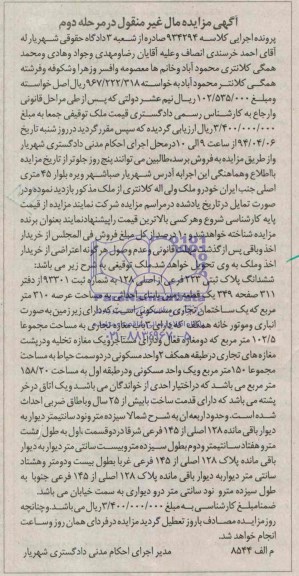 آگهی مزایده مال غیر منقول در مرحله دوم
پرونده اجرایی کلاسه ۹۳۴۲۹۴ صادره از شعبه ۳ دادگاه حقوقی شهریار له
آقای احمد خرسندی انصاف وعلیه آقایان رضاومهدی وجواد وهادی ومحمد
همگی کلانتری محمود آباد وخانم ها معصومه وافسر وزهرا وشکوفه وفرشته
همگی کلانتر محمود آباد به خواسته ۹۶۷/۲۲۲/۳۱۸ ریال اصل خواسته
ومبلغ ۱۰۲/۵۳۵/۰۰۰ ریال نیم عشر دولتی که پس از طی مراحل قانونی
وارجاع به کارشناس رسمی دادگستری قیمت ملک توقیفی جمعا به مبلغ
۳/۴۰۰/۰۰۰/۰۰۰ ریال ارزیابی گردیده که سپس مقرر گردید در روز شنبه تاریخ
۹۴/۰۴/۰۶ از ساعت ۹ الی ۱۰ در محل اجرای احکام مدنی دادگستری شهریار
واز طریق مزایده به فروش برسد، طالبین می توانند پنج روز جلوتر از تاریخ مزایده
با اطلاع وهماهنگی این اجرا به آدرس شهریار صباشهر ویره بلوار ۴۵ متری
اصلی جنب ایران خودرو ملک ولی اله کلانتری از ملک مذکور بازدید نموده ودر
صورت تمایل در تاریخ یادشده در مراسم مزایده شرکت نمایند مزایده از قیمت
پایه کارشناسی شروع وهر کسی بالاترین قیمت را پیشنهاد نماید بعنوان برنده
مزایده شناخته خواهد شد و ۱۰ درصد از کل مبلغ فروش فی المجلس از خریدار
اخذ وباقی پس از گذشت مهلت قانونی و عدم وصول هر گونه اعتراضی از خریدار
اخذ وملک به وی تحویل خواهد شد. ملک توقیفی به شرح زیر می باشد:
ششدانگ پلاک ثبتی ۲۲۳ فرعی از اصلی ۱۲۸ به شماره ثبت ۹۳۳۰۱ از دفتر
۳۱۱ صفحه ۳۴۹ یک قطعه مساحت عرصه ۳۱۰ متر
مربع که یک ساختمان تجاری مسکونی است که دارای زیر زمین به صورت
انباری وموتور خانه همکف که دارای مغازه تجاری به مساحت مجموعا
۱۰۲/۵ متر مربع که دومغازه فعال ودارای مستاجر و یک مغازه تخلیه ودرپشت
مغازه های تجاری در طبقه همکف ۲ واحد مسکونی در دو سمت حیاط به مساحت
مجموعا ۱۵۰ متر مربع ویک واحد مسکونی ودر طبقه اول به مساحت ۱۵۸/۲۰
متر مربع می باشد که در اختیار احدی از خواندگان می باشد ویک اتاق در خر
پشته می باشد که دارای قدمت ساخت بابیش از ۲۵ سال وباطاق ضربی احداث
شده است. وحدود اربعه آن به شرح شمالا سیزده متر ونود سانتیمتر دیوار به
دیوار باقی مانده ۱۲۸ اصلی از ۱۴۵ فرعی شرقا در دو قسمت ،اول به طول هشت
متر وهفتاد سانتیمتر ودوم بطول سیزده متر وبیست سانتی متر دیوار به دیوار
باقی مانده پلاک ۱۲۸ اصلی از ۱۴۵ فرعی غربا بطول بیست ودومتر وهشتاد
سانتی متر دیوار به دیوار باقی مانده پلاک ۱۲۸ اصلی از ۱۴۵ فرعی جنوبا به
طول سیزده مترو نود سانتی متر در و دیواری به سمت خیابان می باشد.
ضمنا مبلغ کارشناسی به مبلغ ۳/۴۰۰/۰۰۰/۰۰۰ ریال می باشد. وچنانچه
روز مزایده مصادف با روز تعطیل گردید مزایده در فردای همان روز وساعت
انجام خواهد شد.
م الف ۸۵۴۴ مدیر اجرای احکام مدنی دادگستری شهریار